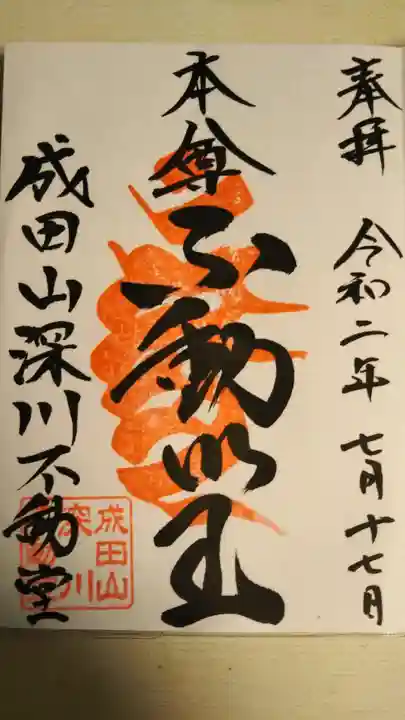 奉拝 令和二年 七月十七日
本尊 不動明王
成田山深川不動堂
成田山
深川